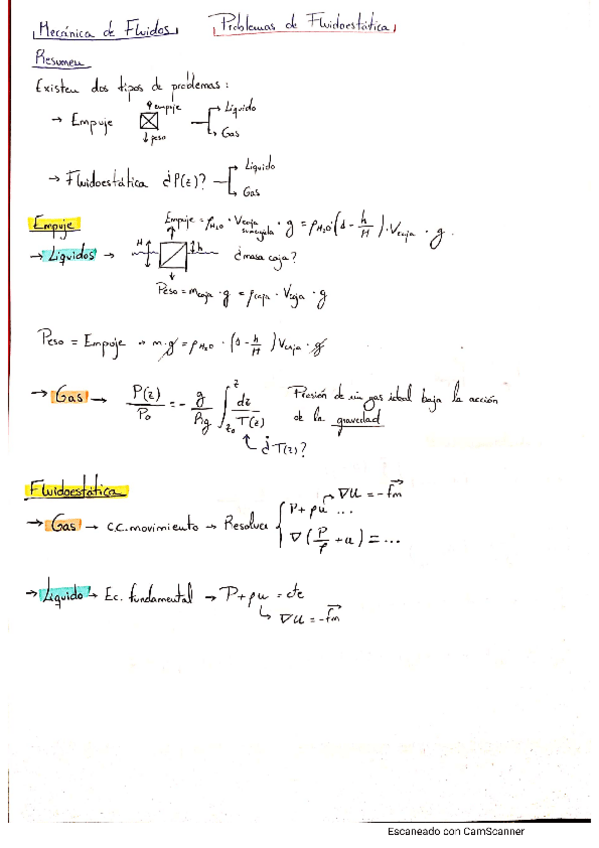 Mecánica de Fluidos Problemas de Fluidoestática
Resumen
Existen dos tipos de problemas:
→ Empuje empuje peso Líquido Gas
→ Fluidoestática ¿P(z)? Líquido Gas
Empuje
Empuje = ρH₂O · Vcaja sumergida · g = ρH₂O · (1 - h/H) · Vcaja · g.
→ Líquidos → H h ¿masa caja?
Peso = mcaja · g = ρcaja · Vcaja · g
Peso = Empuje → m·g = ρH₂O · (1 - h/H) Vcaja · g
→ Gas → P(z)/P₀ = - g/Rg ∫ z₀ z dz/T(z) Presión de un gas ideal baja la acción
de la gravedad
¿T(z)?
Fluidoestática
→ Gas → c.c. movimiento → Resolver { P + ρu ... → ∇u = -fm
∇(P/ρ + u) = ...
→ Líquido → Ec. fundamental → P + ρu = cte
↳ ∇u = -fm
Escaneado con CamScanner